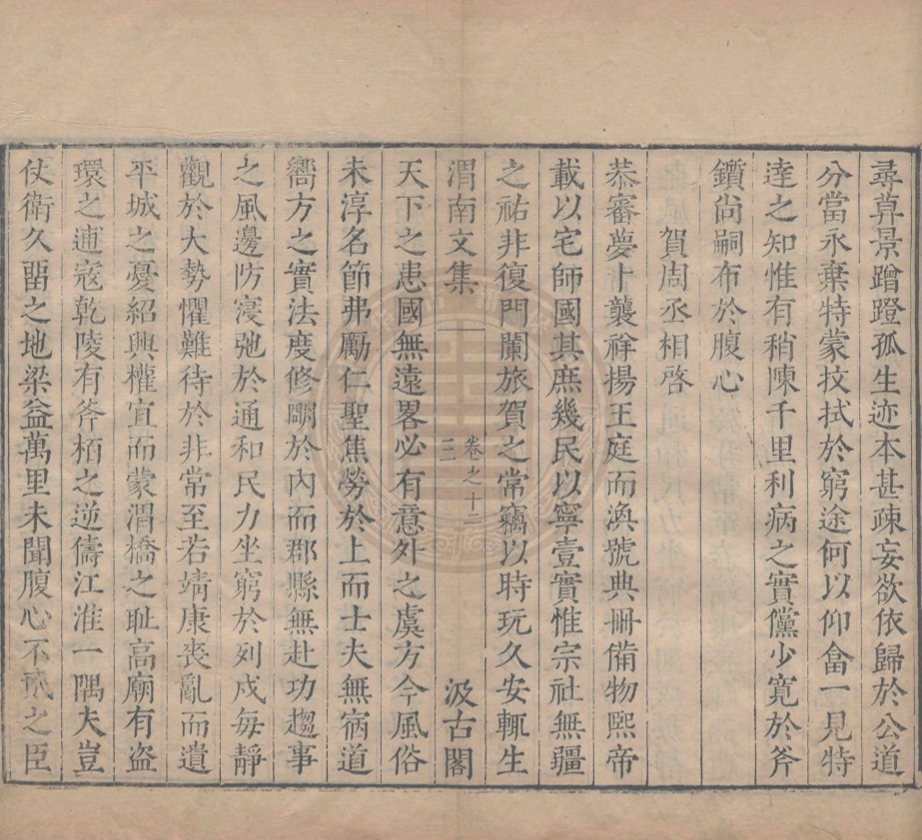 尋葬景蹭蹬孤生迹本甚疎妄欲依歸於公道
分當永棄特蒙抆拭於窮途何以仰畣一見特
達之知惟有稍陳千里利病之實儻少寬於斧
鑕尙嗣布於腹心
賀周丞相啓
恭審夢卜襲祥揚王庭而渙號典冊備物熙帝
載以宅師國其庶幾民以寧壹實惟宗社無疆
之祐非復門闌旅賀之常竊以時玩久安輒生
渭南文集 卷之十二 三 汲古閣
天下之患國無遠畧必有意外之虞方今風俗
未淳名節弗勵仁聖焦勞於上而士夫無病道
嚮方之實法度修明於內而郡縣無赴功趨事
之風邊防寖弛於通和民力坐窮於列戍每靜
觀於大勢懼難待於非常至若靖康喪亂而遺
平城之憂紹興權宜而蒙渭橋之耻高廟有盜
環之逋寇乾陵有斧栢之逆儔江淮一隅夫豈
仗衛久畱之地梁益萬里未聞腹心不貳之臣